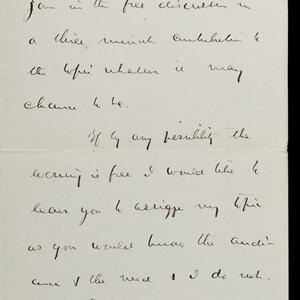 join in the free discussion in
a three minute contribution to
the topic whatever it may
chance to be.
If by any possibility the
evening is free I would like to
leave you to assign my topic
as you would know the audi-
ence & the need & I do not.